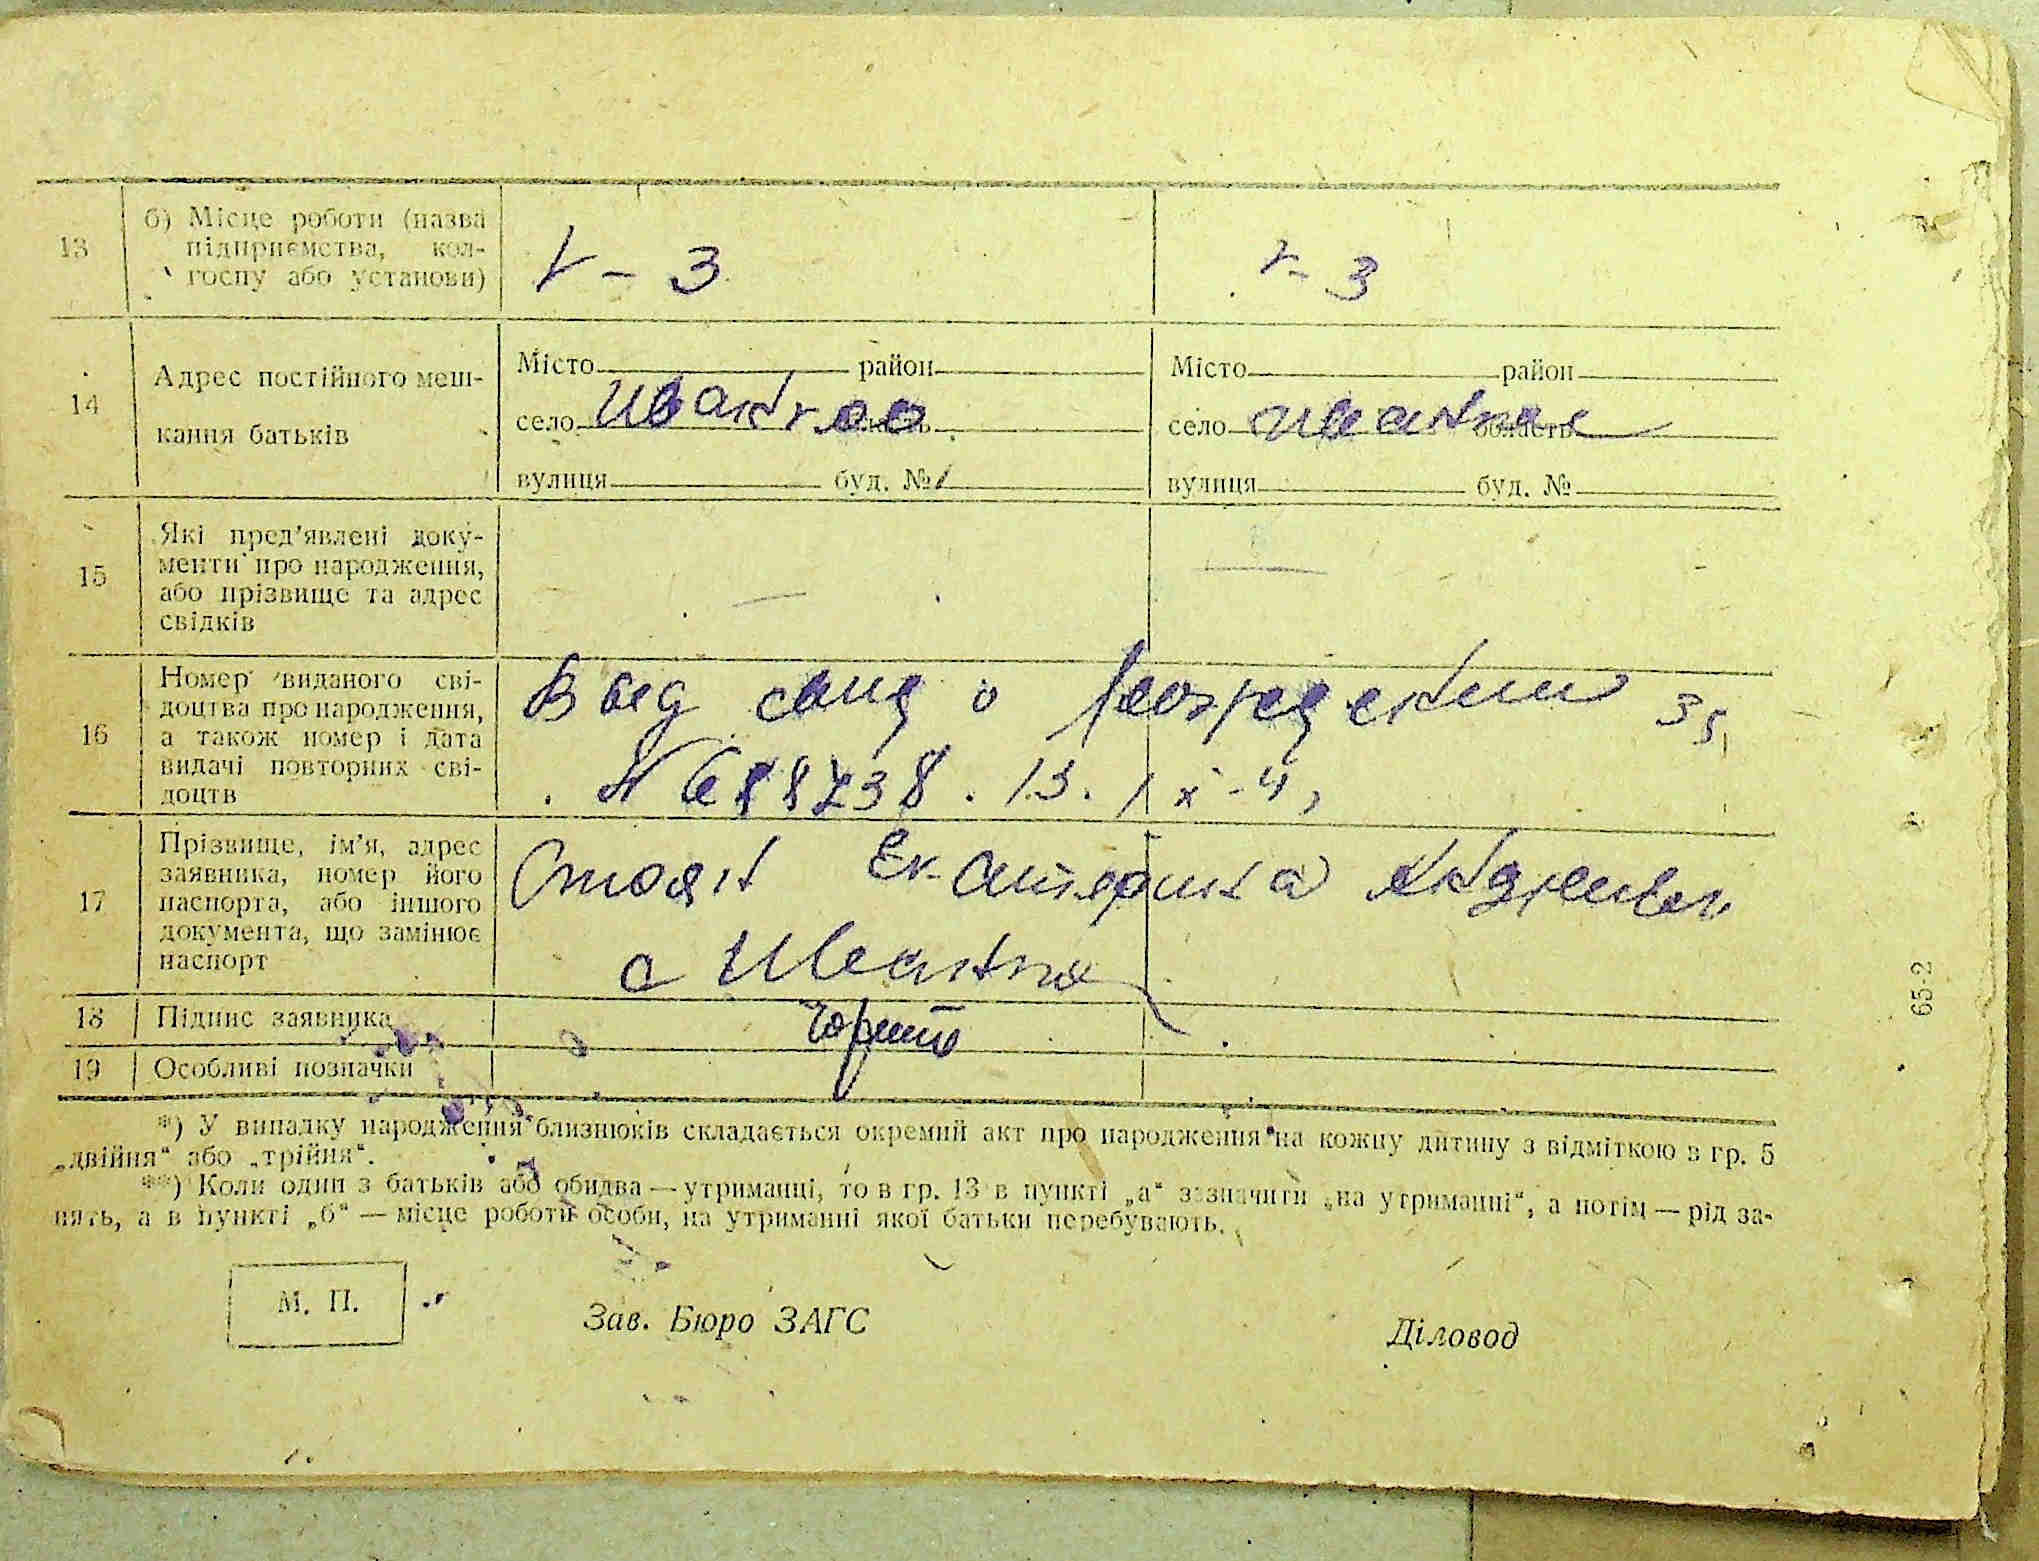 13
б) Місце роботи (назва
підприємства, кол-
госпу або установи)
г - з
г - з
14
Адрес постійного меш-
кання батьків
Місто район
село область
вулиця буд. №
Місто район
село область
вулиця буд. №
15
Які пред'явлені доку-
менти про народження,
або прізвище та адрес
свідків
16
Номер виданого сві-
доцтва про народження,
а також номер і дата
видачі повторних сві-
доцтв
свид о
N 13. IX-4
17
Прізвище, ім'я, адрес
заявника, номер його
паспорта, або іншого
документа, що замінює
паспорт
Стоян Екатерина
18
Підпис заявника
19
Особливі позначки
*) У випадку народження близнюків складається окремий акт про народження на кожну дитину з відміткою в гр. 5
„двійня“ або „трійня“.
**) Коли один з батьків або обидва — утриманці, то в гр. 13 в пункті „а“ зазначити „на утриманні“, а потім — рід за-
нять, а в пункті „б“ — місце роботи особи, на утриманні якої батьки перебувають.
М. П.
Зав. Бюро ЗАГС
Діловод
65-2